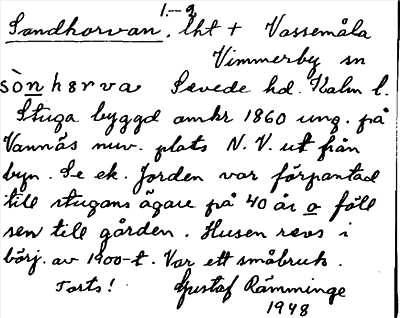 1.-9.
Sandhorvan, lht + Vassemåla
Vimmerby sn
sònhørva Sevede hd. Kalm l.
Stuga byggd omkr 1860 ung. på
Vannäs nuv. plats N.V. ut från
byn. Se ek. Jorden var förpantad
till stugans ägare på 40 år o föll
sen till gården. Husen revs i
börj. av 1900-t. Var ett småbruk.
Forts! Gustaf Rämminge
1948